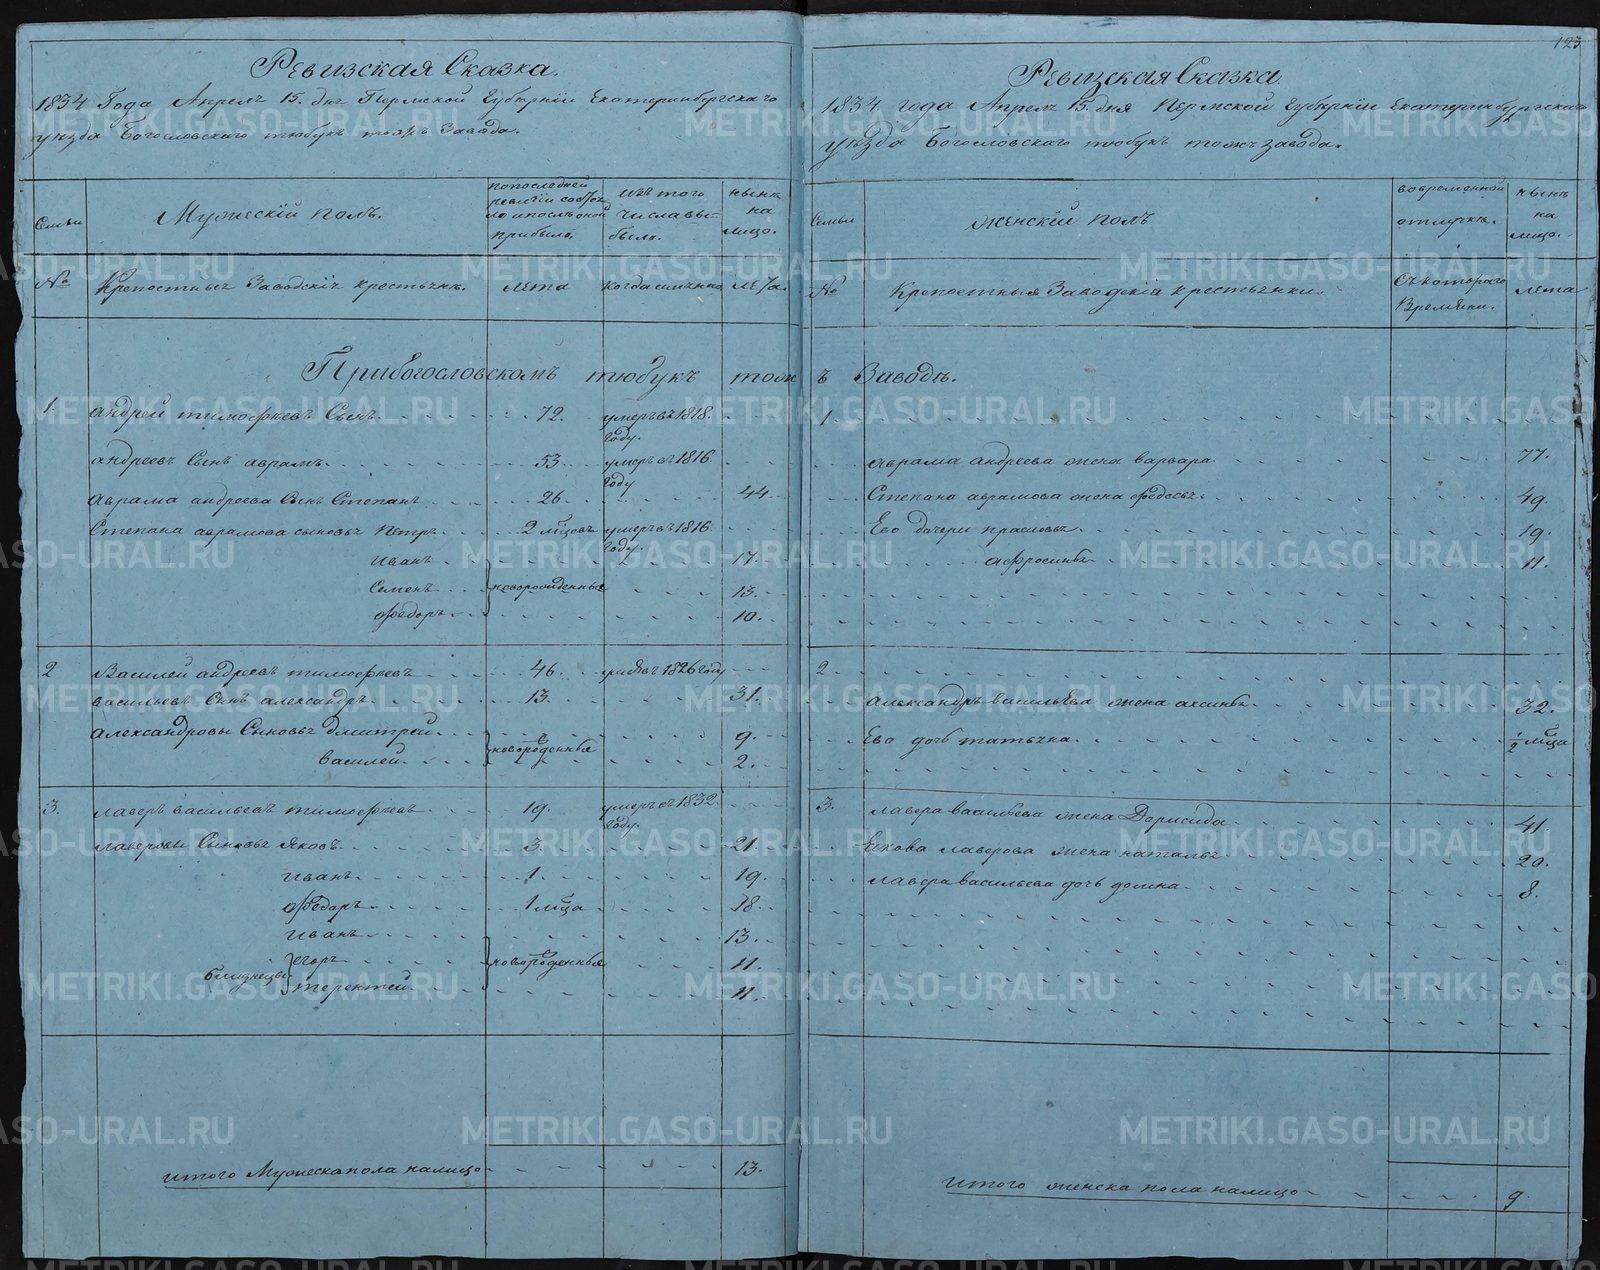 Ревизская Сказка.
1834 Года Апрель 15. дня Пермской Губернии Екатеринбургскаго
уезда Богословскаго тюбукъ тожъ Завода.
Семьи
Мужескій полъ.
по последней
ревизіи состо
яло и после оной
прибыло.
Изъ того
числа вы
было.
ныне
на
лицо.
№
Крепостные Заводскія крестьяне.
лета
Когда именно
лета.
При богословскомъ тюбукъ тож
1. андрей тимофеевъ Сынъ 72. умеръ въ 1818.
году.
андреевъ Сынъ аврамъ 53. умеръ въ 1816.
году
аврама андреева Сынъ Степанъ 26. 44
Степана аврамова сыновья Петръ 2 мцовъ умеръ въ 1816
году.
иванъ 17.
Семенъ новорожденные 13.
Федоръ 10.
2 Василей андреевъ тимофеевъ 46. умеръ 1826 году
васильевъ Сынъ александръ 13. 31.
александровы Сыновья дмитрей новорожденные 9.
василей 2.
3. лаверъ васильевъ тимофеевъ 19. умеръ въ 1832.
году.
лаверовы Сыновья Яковъ 3. 21
иванъ 1. 19.
Федаръ 1 мца 18
иванъ 13.
близнецы егоръ новорожденные 11.
терентей 11.
итого Мужеска пола налицо 13.
123
Ревизская Сказка.
1834. года Апрель 15. дня Пермской Губерніи Екатеринбургскаго
уезда Богословскаго тюбукъ тожъ завода.
Семьи
женскій полъ
во временной
отлучке.
ныне
на
лицо.
№
Крепостныя Заводскія крестьянки.
Съ котораго
Времяни.
лета
ъ Заводе.
1.
аврама андреева жена варвара 77.
Степана аврамова жена федосья 49.
Ево дочери прасковья 19.
афросинья 11.
2.
александръ васильева жена аксинья 32.
Ево дочь татьяна 1/2 мца
3. лавера васильева жена Дарисида 41.
Екова лаверова жена наталья 20.
лавера васильева дочь домна 8.
Итого женска пола налицо 9
METRIKI.GASO-URAL.RU